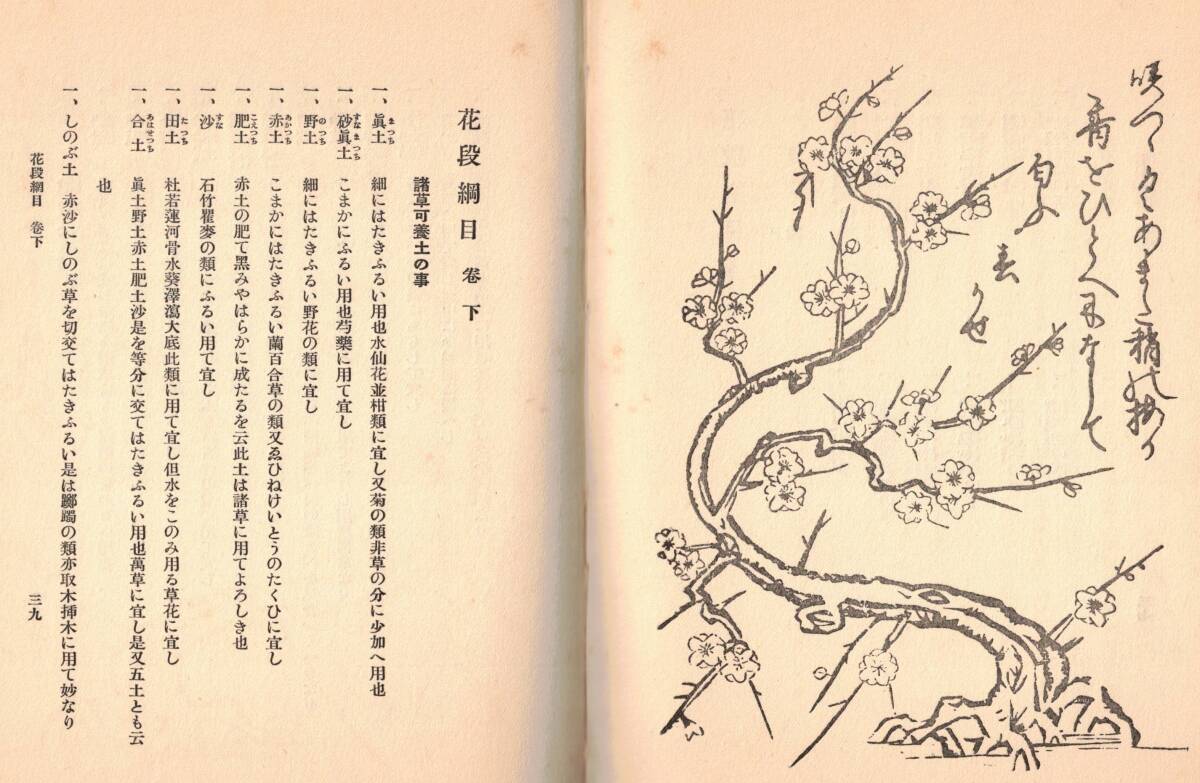 咲つゝくあまた稍の梅か
香をひとへになして
匂ふ
春
かせ
花段綱目 卷下
諸草可養土の事
まつち
一、眞土 細にはたきふるい用也水仙花並柑類に宜し又菊の類非草の分に少加へ用也
すなまつち
一、砂眞土 こまかにふるい用也芍藥に用て宜し
のつち
一、野土 細にはたきふるい野花の類に宜し
あかつち
一、赤土 こまかにはたきふるい繭百合草の類又ゑひねけいとうのたくひに宜し
こえつち
一、肥土 赤土の肥て黑みやはらかに成たるを云此土は諸草に用てよろしき也
すな
一、沙 石竹瞿麥の類にふるい用て宜し
たつち
一、田土 杜若蓮河骨水葵澤瀉大底此類に用て宜し但水をこのみ用る草花に宜し
あはせつち
一、合土 眞土野土赤土肥土沙是を等分に交てはたきふるい用也萬草に宜し是又五土とも云
也
一、しのぶ土 赤沙にしのぶ草を切交てはたきふるい是は躑躅の類亦取木挿木に用て妙なり
花段綱目 卷下
三九